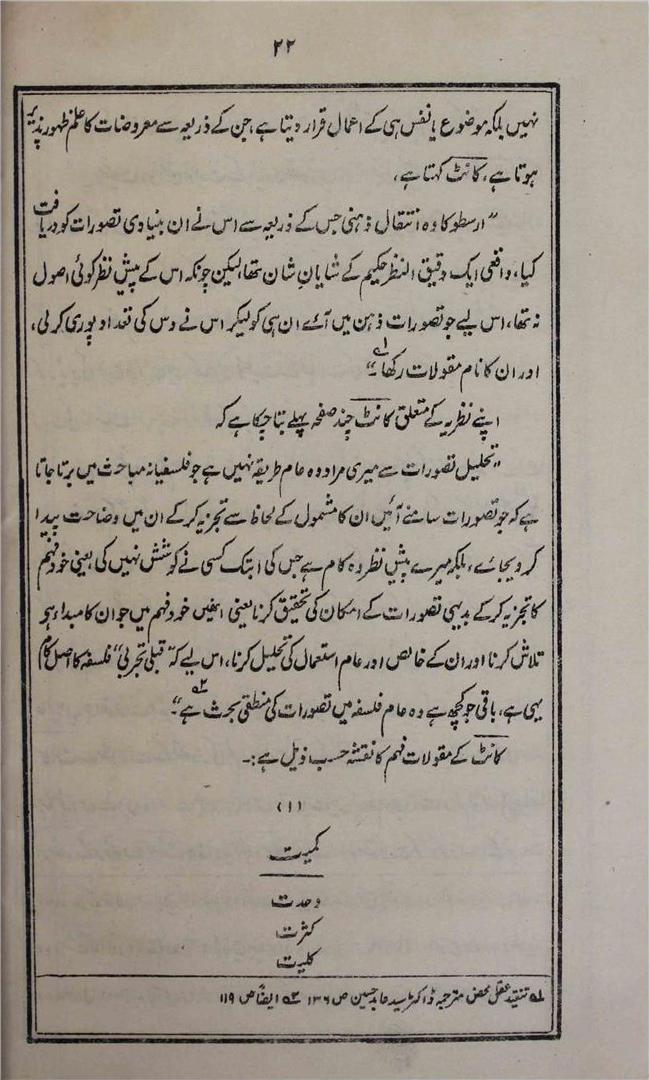 ۲۲
نہیں بلکہ موضوع یا نفس ہی کے اعمال قرار دیتا ہے، جن کے ذریعہ سے معروضات کا علم ظہور پذیر
ہوتا ہے، کانٹ کہتا ہے،
"ارسطو کا وہ انتقال ذہنی جس کے ذریعہ سے اس نے ان بنیادی تصورات کو دریافت
کیا، واقعی ایک دقیق النظر حکیم کے شایانِ شان تھا، لیکن چونکہ اس کے پیشِ نظر کوئی اصول
نہ تھا، اس لیے جو تصورات ذہن میں آئے ان ہی کو لیکر اس نے دس کی تعداد پوری کر لی،
اور ان کا نام مقولات رکھا۔"۱؎
اپنے نظریہ کے متعلق کانٹ چند صفحہ پہلے بتا چکا ہے کہ
"تحلیل تصورات سے میری مراد وہ عام طریقہ نہیں ہے جو فلسفیانہ مباحث میں برتا جاتا
ہے کہ جو تصورات سامنے آئیں ان کا مشمول کے لحاظ سے تجزیہ کر کے ان میں وضاحت پیدا
کر دیجائے، بلکہ میرے پیشِ نظر وہ کام ہے جس کی ابتک کسی نے کوشش نہیں کی، یعنی خود فہم
کا تجزیہ کر کے بدیہی تصورات کے امکان کی تحقیق کرنا یعنی انھیں خود فہم میں جو ان کا مبداء ہو
تلاش کرنا اور ان کے خالص اور عام استعمال کی تحلیل کرنا، اس لیے کہ "قبلی تجربی" فلسفہ کا اصل کام
یہی ہے، باقی جو کچھ ہے وہ عام فلسفہ میں تصورات کی منطقی بحث ہے"۲؎
کانٹ کے مقولات فہم کا نقشہ حسب ذیل ہے:۔
(۱)
کمیت
وحدت
کثرت
کلیت
۱؎ تنقید عقل محض مترجمہ ڈاکٹر سید عابد حسین ص ۱۳۶ ۲؎ ایضاً ص ۱۱۹